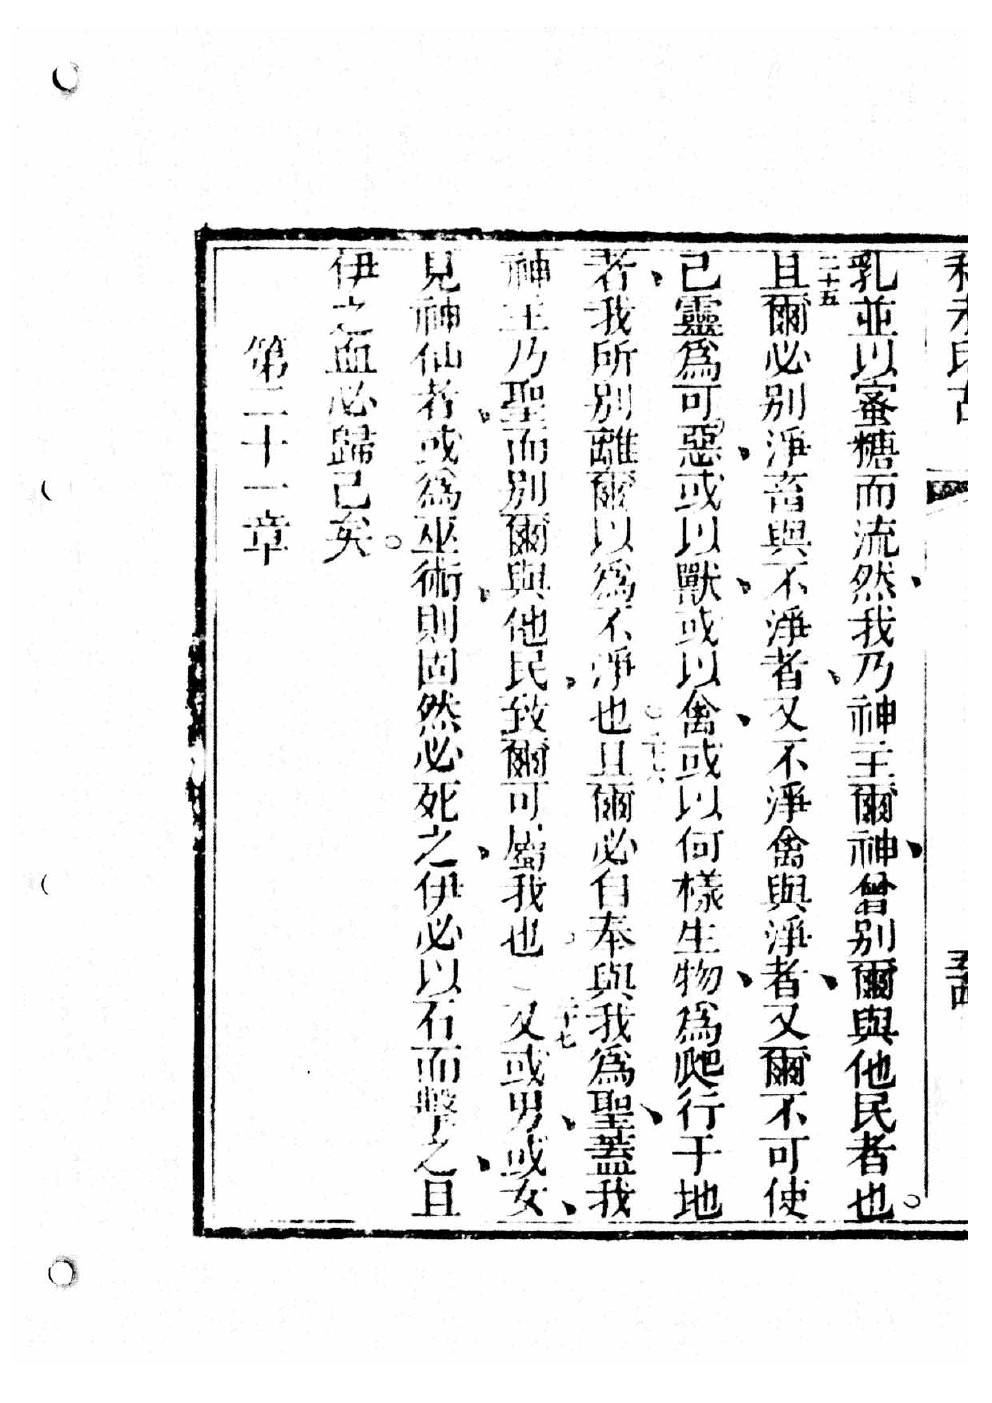 利未氏古
五十四
乳並以蜜糖而流、然我乃神主爾神、曾別爾與他民者也。
二十五且爾必別淨畜與不淨者、又不淨禽與淨者、又爾不可使
己靈爲可惡、或以獸、或以禽、或以何樣生物、爲爬行于地
者、我所別離爾以爲不淨也。二十六且爾必自奉與我爲聖、蓋我
神主乃聖、而別爾與他民、致爾可屬我也。二十七又或男、或女、
見神仙者、或爲巫術、則固然必死之、伊必以石而擊之、且
伊之血必歸己矣。
第二十一章